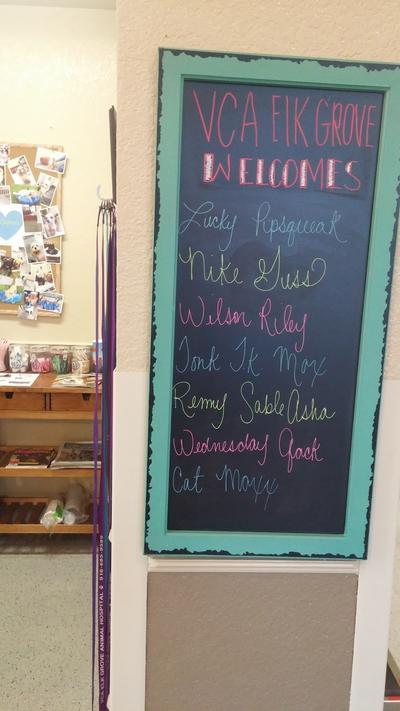 VCA ElK GROVE
WELCOMES
Lucky Pipsqueak
Nike Guss
Wilson Riley
Tonk TK Max
Remy Sable Asha
Wednesday Jack
Cat Moxx
VCA ELK GROVE ANIMAL HOSPITAL 916-685-9589